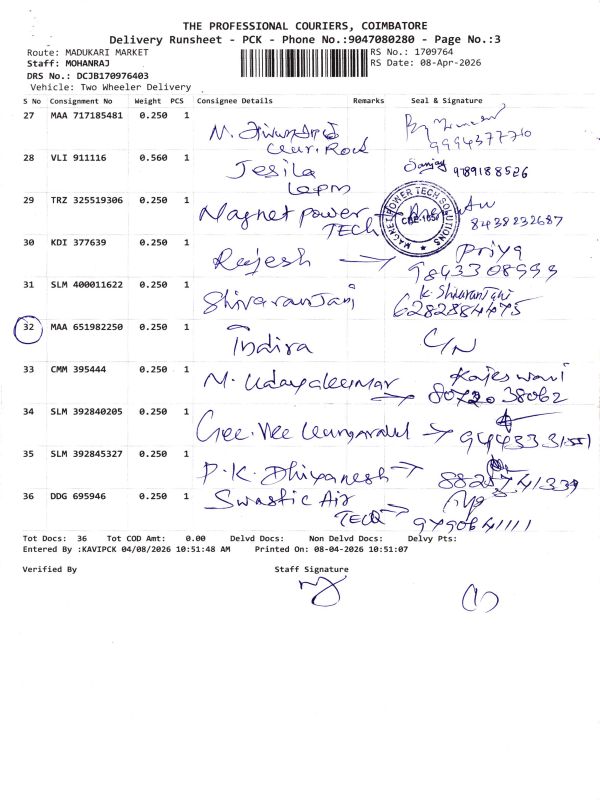 THE PROFESSIONAL COURIERS, COIMBATORE
Delivery Runsheet - PCK - Phone No.:9047080280 - Page No.:3
Route: MADUKARI MARKET
RS No.: 1709764
Staff: MOHANRAJ
RS Date: 08-Apr-2026
DRS No.: DCJB170976403
Vehicle: Two Wheeler Delivery
S No Consignment No Weight PCS Consignee Details Remarks Seal & Signature
27 MAA 717185481 0.250 1
9994377710
28 VLI 911116 0.560 1 Jesila Sanjay 9789188526
29 TRZ 325519306 0.250 1 Magnet power
TECH 8438232687
MAGNET POWER TECH SOLUTIONS
30 KDI 377639 0.250 1 Rajesh → Priya
9843308999
31 SLM 400011622 0.250 1 Shivaranjani K. Shivaranjani
6282884475
32 MAA 651982250 0.250 1 Indira C/N
33 CMM 395444 0.250 1 M. Udayakumar → Rajeswari
80720 38062
34 SLM 392840205 0.250 1 Gee. Vee →
35 SLM 392845327 0.250 1 P.K. Dhiyanesh →
36 DDG 695946 0.250 1 Swastic Air
TECH → 9790641111
Tot Docs: 36 Tot COD Amt: 0.00 Delvd Docs: Non Delvd Docs: Delvy Pts:
Entered By :KAVIPCK 04/08/2026 10:51:48 AM Printed On: 08-04-2026 10:51:07
Verified By Staff Signature
(1)